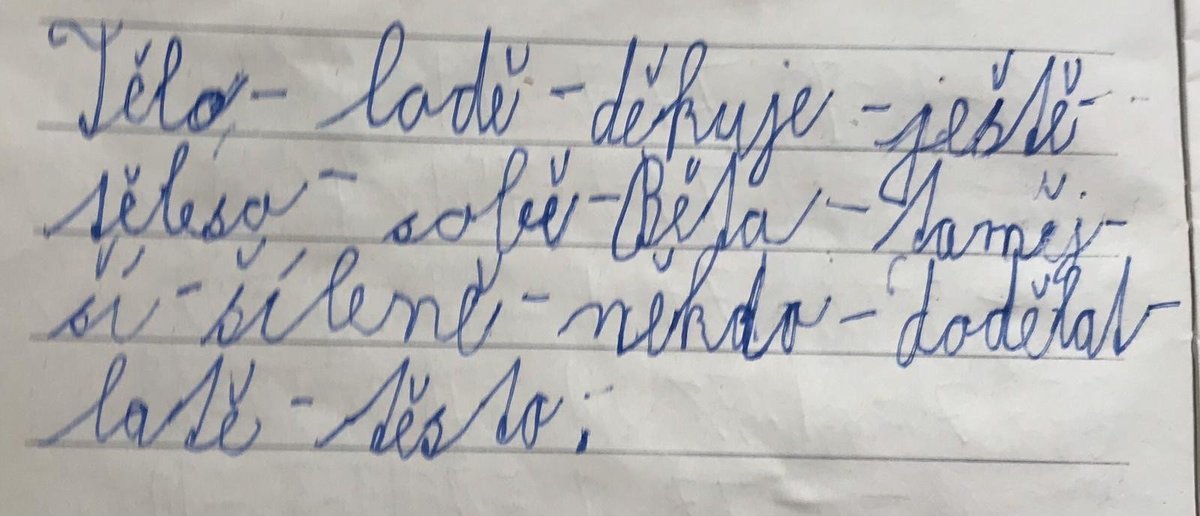 Tělo - ladě - děkuje - ještě -
tělesa - sobě - Běta - taměj-
ší - šíleně - někdo - dodělat -
latě - těsto;